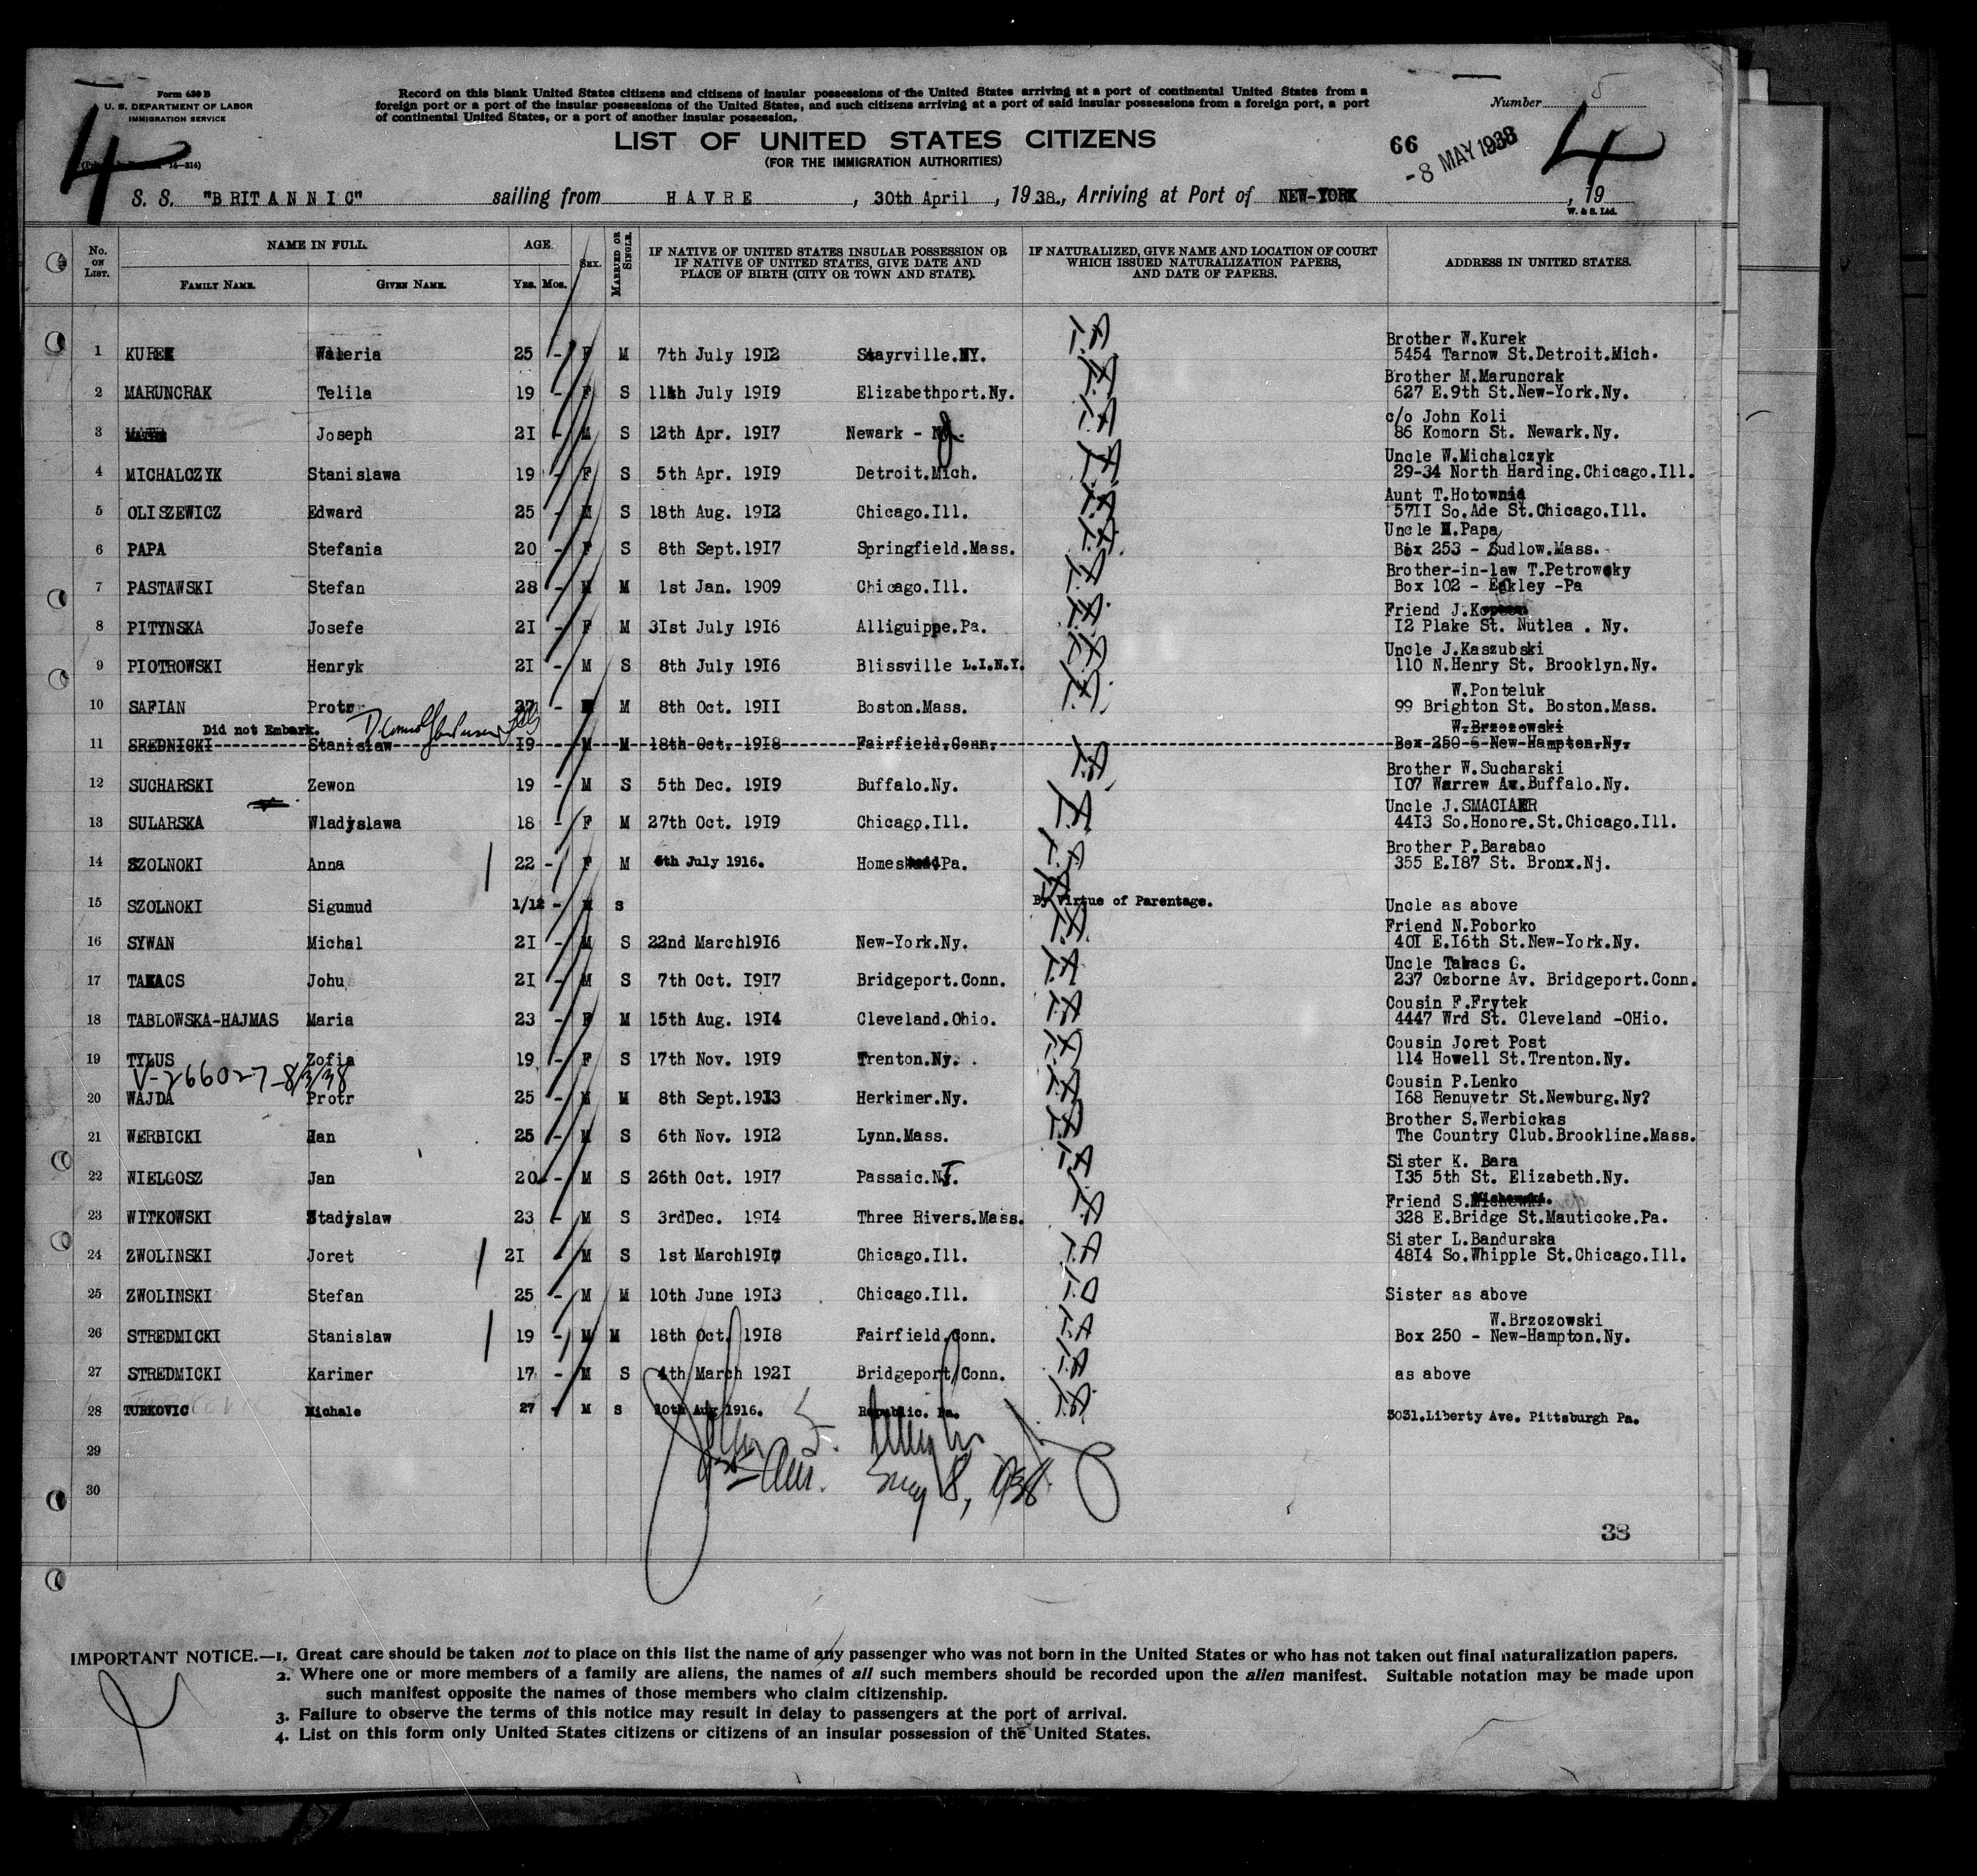 Form 630 B
U. S. DEPARTMENT OF LABOR
IMMIGRATION SERVICE
4
Record on this blank United States citizens and citizens of insular possessions of the United States arriving at a port of continental United States from a
foreign port or a port of the insular possessions of the United States, and such citizens arriving at a port of said insular possessions from a foreign port, a port
of continental United States, or a port of another insular possession.
Number 5
LIST OF UNITED STATES CITIZENS
(FOR THE IMMIGRATION AUTHORITIES)
66
-8 MAY 1938
4
S. S. "BRITANNIC" sailing from HAVRE, 30th April, 1938., Arriving at Port of NEW-YORK, 19
W. & S. Ltd.
No. ON LIST. NAME IN FULL. AGE. SEX. MARRIED OR SINGLE. IF NATIVE OF UNITED STATES INSULAR POSSESSION OR IF NATIVE OF UNITED STATES, GIVE DATE AND PLACE OF BIRTH (CITY OR TOWN AND STATE). IF NATURALIZED, GIVE NAME AND LOCATION OF COURT WHICH ISSUED NATURALIZATION PAPERS, AND DATE OF PAPERS. ADDRESS IN UNITED STATES.
FAMILY NAME. GIVEN NAME. YRS. MOS.
Brother W.Kurek
1 KUREK Waleria 25 - F M 7th July 1912 Stayrville.NY. 5454 Tarnow St.Detroit.Mich.
Brother M.Maruncrak
2 MARUNCRAK Telila 19 - F S 11th July 1919 Elizabethport.Ny. 627 E.9th St.New-York.Ny.
c/o John Koli
3 Joseph 21 - M S 12th Apr. 1917 Newark - 86 Komorn St. Newark.Ny.
Uncle W.Michalczyk
4 MICHALCZYK Stanislawa 19 - F S 5th Apr. 1919 Detroit.Mich. 29-34 North Harding.Chicago.Ill.
Aunt T.Hotownia
5 OLISZEWICZ Edward 25 - M S 18th Aug. 1912 Chicago.Ill. 5711 So.Ade St.Chicago.Ill.
Uncle M.Papa
6 PAPA Stefania 20 - F S 8th Sept.1917 Springfield.Mass. Box 253 - Ludlow.Mass.
Brother-in-law T.Petrowsky
7 PASTAWSKI Stefan 28 - M M 1st Jan. 1909 Chicago.Ill. Box 102 - Eckley -Pa
Friend
8 PITYNSKA Josefe 21 - F M 31st July 1916 Alliguippe.Pa. 12 Plake St. Nutlea . Ny.
Uncle J.Kaszubski
9 PIOTROWSKI Henryk 21 - M S 8th July 1916 Blissville L.I.N.Y. 110 N.Henry St. Brooklyn.Ny.
W.Ponteluk
10 SAFIAN Protr 27 - M M 8th Oct. 1911 Boston.Mass. 99 Brighton St. Boston.Mass.
Did not Embark. W.Brzozowski
11 SREDNICKI Stanislaw 19 - M M 18th Oct. 1918 Fairfield.Conn. Box-250-6-New-Hampton.Ny.
Brother W.Sucharski
12 SUCHARSKI Zewon 19 - M S 5th Dec. 1919 Buffalo.Ny. 107 Warrew Av.Buffalo.Ny.
Uncle J.SMACIAER
13 SULARSKA Wladyslawa 18 - F M 27th Oct. 1919 Chicago.Ill. 4413 So.Honore.St.Chicago.Ill.
Brother P.Barabao
14 SZOLNOKI Anna 22 - F M 4th July 1916. Homestead Pa. 355 E.187 St. Bronx.Nj.
15 SZOLNOKI Sigumud 1/12 - M S By Virtue of Parentage. Uncle as above
Friend N.Poborko
16 SYWAN Michal 21 - M S 22nd March1916 New-York.Ny. 401 E.16th St.New-York.Ny.
Uncle Takacs G.
17 TAKACS Johu 21 - M S 7th Oct. 1917 Bridgeport.Conn. 237 Ozborne Av. Bridgeport.Conn.
Cousin F.Frytek
18 TABLOWSKA-HAJMAS Maria 23 - F M 15th Aug. 1914 Cleveland.Ohio. 4447 Wrd St. Cleveland -OHio.
Cousin Joret Post
19 TYLUS Zofia 19 - F S 17th Nov. 1919 Trenton.Ny. 114 Howell St.Trenton.Ny.
V-266027-8/3/38 Cousin P.Lenko
20 WAJDA Protr 25 - M M 8th Sept.1913 Herkimer.Ny. 168 Renuvetr St.Newburg.Ny?
Brother S.Werbickas
21 WERBICKI Jan 25 - M S 6th Nov. 1912 Lynn.Mass. The Country Club.Brookline.Mass.
Sister K. Bara
22 WIELGOSZ Jan 20 - M S 26th Oct. 1917 Passaic.NJ. 135 5th St. Elizabeth.Ny.
Friend
23 WITKOWSKI Stadyslaw 23 - M S 3rdDec. 1914 Three Rivers.Mass. 328 E.Bridge St.Mauticoke.Pa.
Sister L.Bandurska
24 ZWOLINSKI Joret 21 - M S 1st March1917 Chicago.Ill. 4814 So.Whipple St.Chicago.Ill.
25 ZWOLINSKI Stefan 25 - M M 10th June 1913 Chicago.Ill. Sister as above
W.Brzozowski
26 STREDMICKI Stanislaw 19 - M M 18th Oct. 1918 Fairfield.Conn. Box 250 - New-Hampton.Ny.
27 STREDMICKI Karimer 17 - M S 4th March 1921 Bridgeport Conn. as above
28 TURKOVIC Michale 27 - M S 20th Aug 1916. Republic. Pa. 3031.Liberty Ave. Pittsburgh Pa.
29
30
May 8, 1938
38
IMPORTANT NOTICE.—1. Great care should be taken not to place on this list the name of any passenger who was not born in the United States or who has not taken out final naturalization papers.
2. Where one or more members of a family are aliens, the names of all such members should be recorded upon the alien manifest. Suitable notation may be made upon
such manifest opposite the names of those members who claim citizenship.
3. Failure to observe the terms of this notice may result in delay to passengers at the port of arrival.
4. List on this form only United States citizens or citizens of an insular possession of the United States.